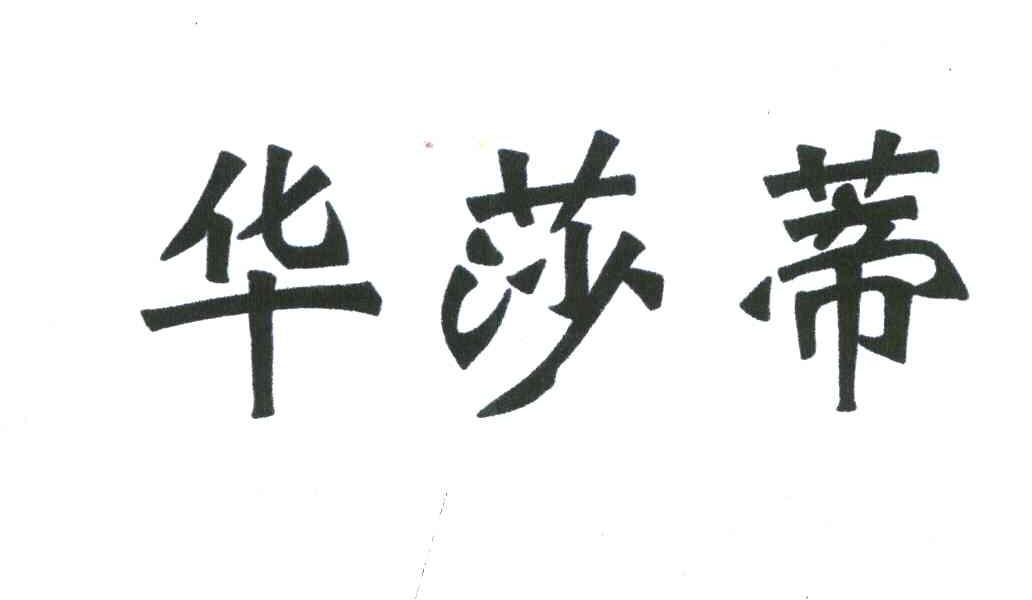 华莎蒂